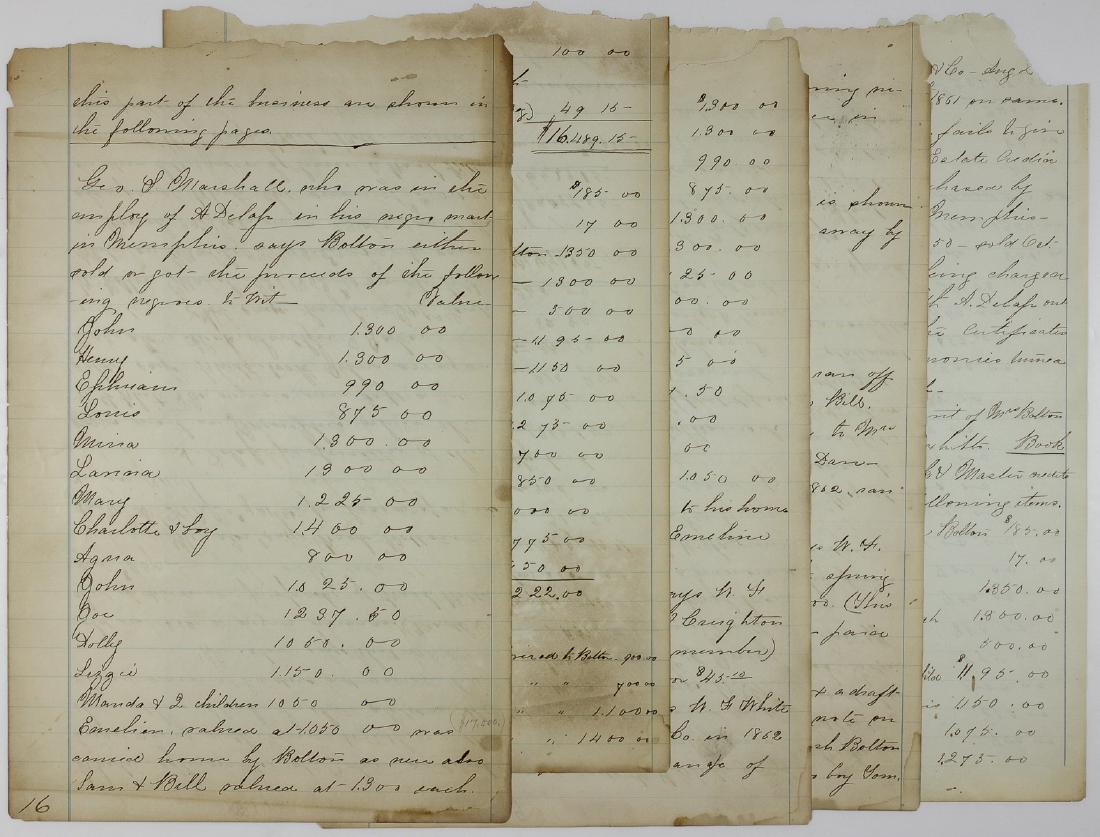 this part of the business are shown in
the following pages.
Geo. S Marshall, who was in the
employ of A Delap in his negro mart
in Memphis. says Bolton either
sold or got the proceeds of the follow
ing negroes to wit— Value
John 1.300 00
Henry 1.300 00
Ephriam 990 00
Louis 875 00
Mina 1.300.00
Lavinia 1300 00
Mary 1.225 00
Charlotte & boy 1.400 00
Agnes 800 00
John 1.025.00
Joe 1237.50
Dolly 1050.00
Lizzie 1.150.00
Manda & 2 children 1050 00
Emelien, valued at 1.050 00 was
carried home by Bolton as were also
Sam & Bill valued at 1.300 each.
(\$17,000.)
16
100 00
49 15
\$16.489.15
\$185.00
17 00
lton 1350 00
1300 00
500 00
1195 00
1150 00
1.095 00
1.275 00
700 00
850 00
000 00
775 00
450 00
222.00
hired to Bolton 900 00
" " 700 00
" " 1.100 00
" " 1400 00
\$1.300 00
1.300 00
990 00
875.00
1.300.00
300.00
25.00
00.00
0.00
5 00
.50
.00
00
1.050 00
to his home
Emeline
says W. F
Creighton
member)
or \$45.00
W. F White
Co. in 1862
ange of
is shown
away by
ran off
Bill.
to Mrs
Dan-
1862 ran
W. F.
spring
00. (This
praise
& a draft
note on
Bolton
boy Tom.
& Co- Aug 2
1861 on same.
fails to give
Estate credit
chased by
Memphis-
50- sold Oct
being charged
A. Delap out
the certificates
Mrs Bolton
Book
& Master credits
following items.
Bolton \$185.00
17.00
1.350.00
1.300.00
500.00
\$1,195.00
1,150.00
1,095.00
1,275.00